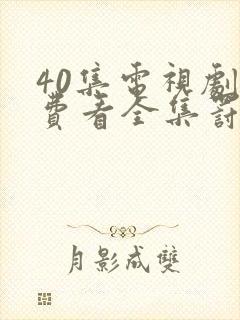 40集電視劇
費看全集討
月影成雙